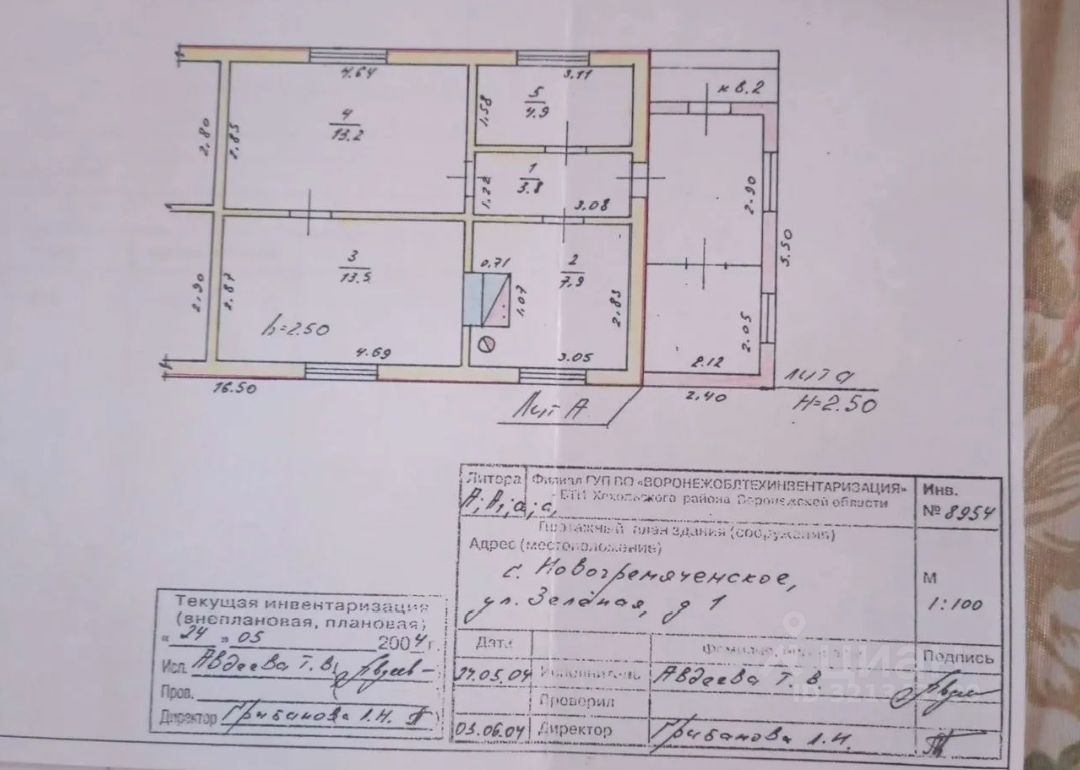 4.64
3.11
к в. 2
5
4.9
1.58
4
13.2
2.80
2.85
1
3.8
1.22
3.08
2.90
5.50
3
13.5
0.71
2
7.9
1.07
2.83
2.90
2.87
h=2.50
4.69
3.05
2.05
2.12
16.50
2.40
Лит А
лит а
H=2.50
Литора Филиал ГУП ВО «ВОРОНЕЖОБЛТЕХИНВЕНТАРИЗАЦИЯ»
БТИ Хохольского района Воронежской области
А; А₁; а; а₁
Инв.
№ 8954
Поэтажный план здания (сооружения)
Адрес (местоположение)
с. Новогремяченское,
ул. Зелёная, д 1
М
1:100
Дата Фамилия, Подпись
27.05.04 Исполнитель Авдеева Т. В
Проверил
03.06.04 Директор Грибанова Л.И.
Текущая инвентаризация
(внеплановая, плановая)
« 24 » 05 2004 г.
Исп. Авдеева Т. В.
Пров.
Директор Грибанова Л.И.
циан